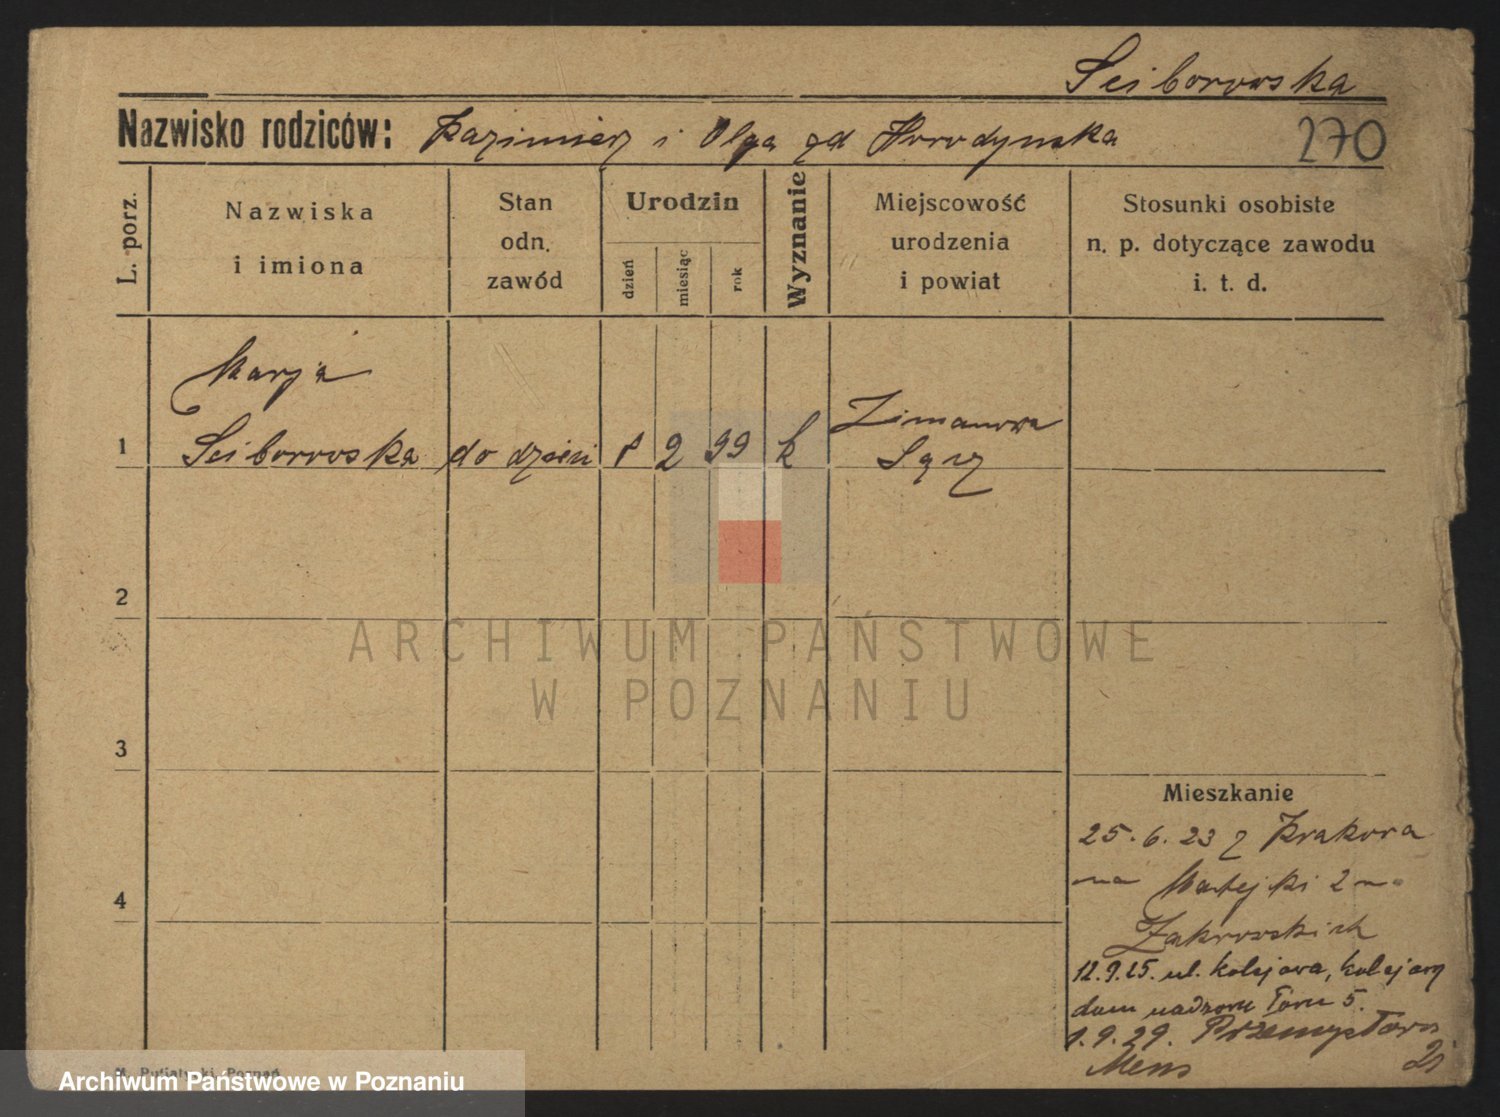 Sciborowska
Nazwisko rodziców: Kazimierz i Olga zd Horodynska
270
L. porz.
Nazwiska
i imiona
Stan
odn.
zawód
Urodzin
dzień
miesiąc
rok
Wyznanie
Miejscowość
urodzenia
i powiat
Stosunki osobiste
n. p. dotyczące zawodu
i. t. d.
Marja
1 Sciborowska do dzieci 2 99 k
Limanowa
Sącz
2
ARCHIWUM PAŃSTWOWE
W POZNANIU
3
Mieszkanie
25.6.23 z Krakowa
4
na Matejki 2
Zakrowskich
12.9.25. ul. kolejowa, kolejowy
dom nadzoru Toru 5.
1.9.29. Przemysłowa
21
Archiwum Państwowe w Poznaniu